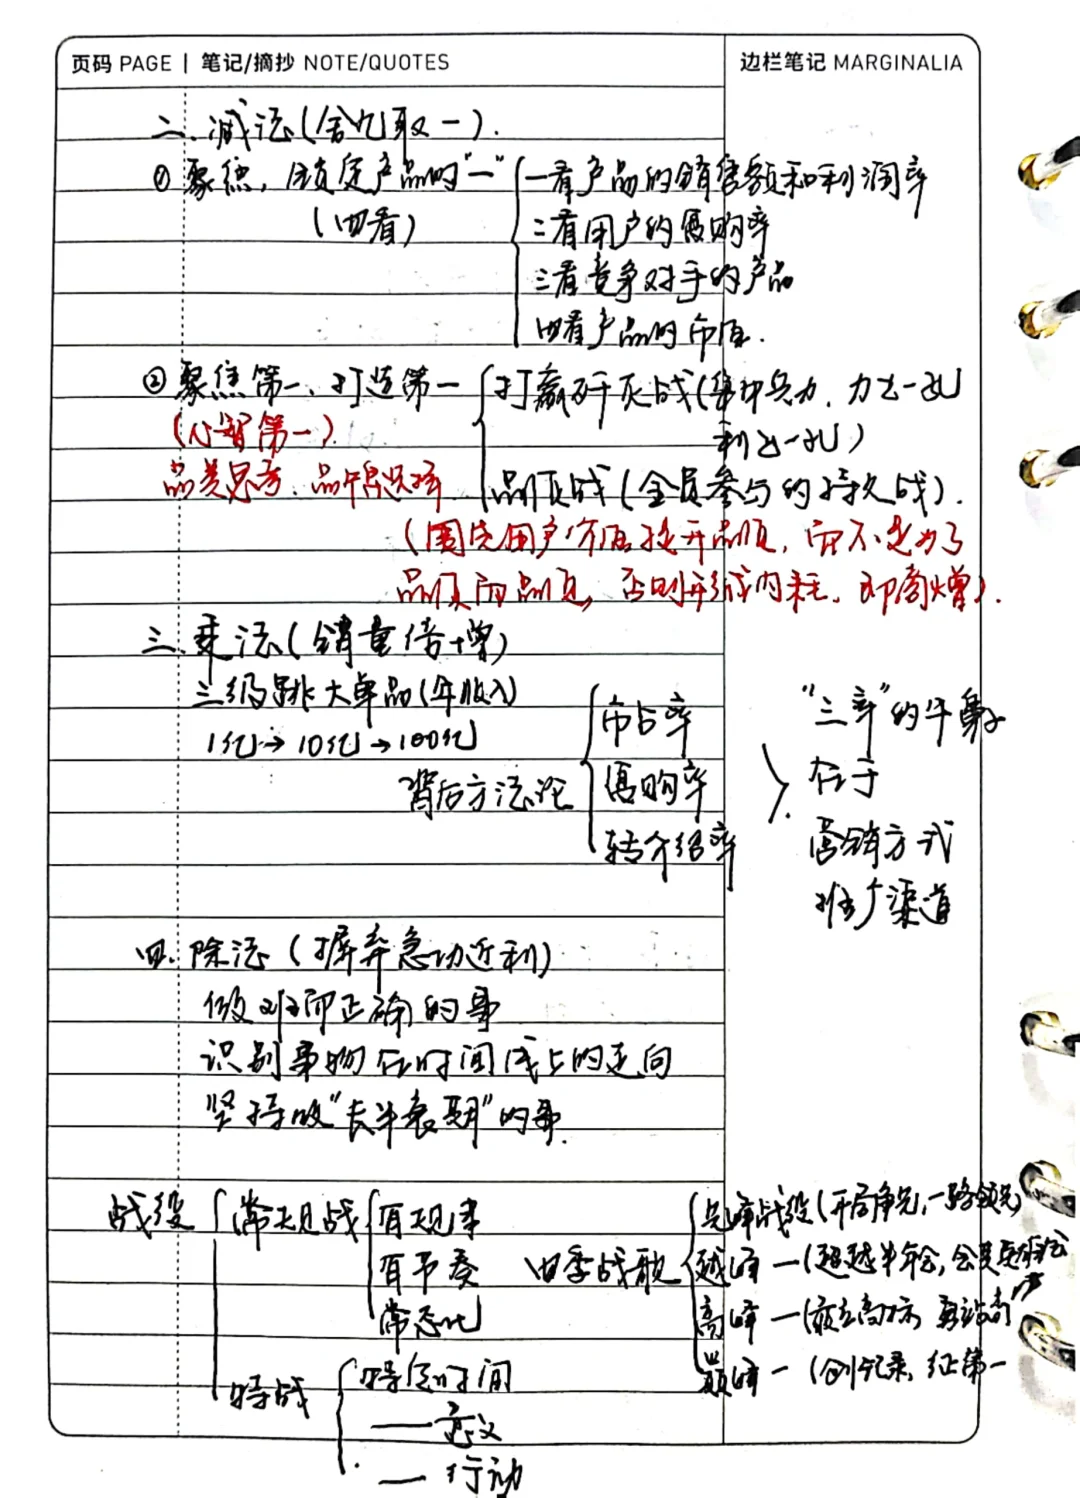 页码 PAGE | 笔记/摘抄 NOTE/QUOTES 边栏笔记 MARGINALIA
二.减法(舍九取一).
①聚焦,锁定产品的"一" 一看产品的销售额和利润率
(四看) 二看用户的复购率
三看竞争对手的产品
四看产品的布局.
②聚焦第一、打造第一 打赢歼灭战(集中兵力,力出一孔
(心智第一) 利出一孔)
品类思考、品牌 品质战(全员参与的持久战).
(围绕用户 展开品质,而不是为了
品质而品质,否则形成内耗,即 ).
三.乘法(销量倍增)
三级跳大单品(年收入)
1亿→10亿→100亿
背后方法论 市占率
复购率
转介绍率
"三率"的牛鼻子
在于
营销方式
推广渠道
四.除法(摒弃急功近利)
做难而正确的事
识别事物在时间线上的走向
坚持做"长半衰期"的事.
战役 常规战 有规律
有节奏 四季战歌
常态化
先峰战役(开局争先,一路领先)
越峰一(超越半年会,
高峰一( 高标
巅峰一(创纪录,征第一
特战 特定时间
——意义
—行动